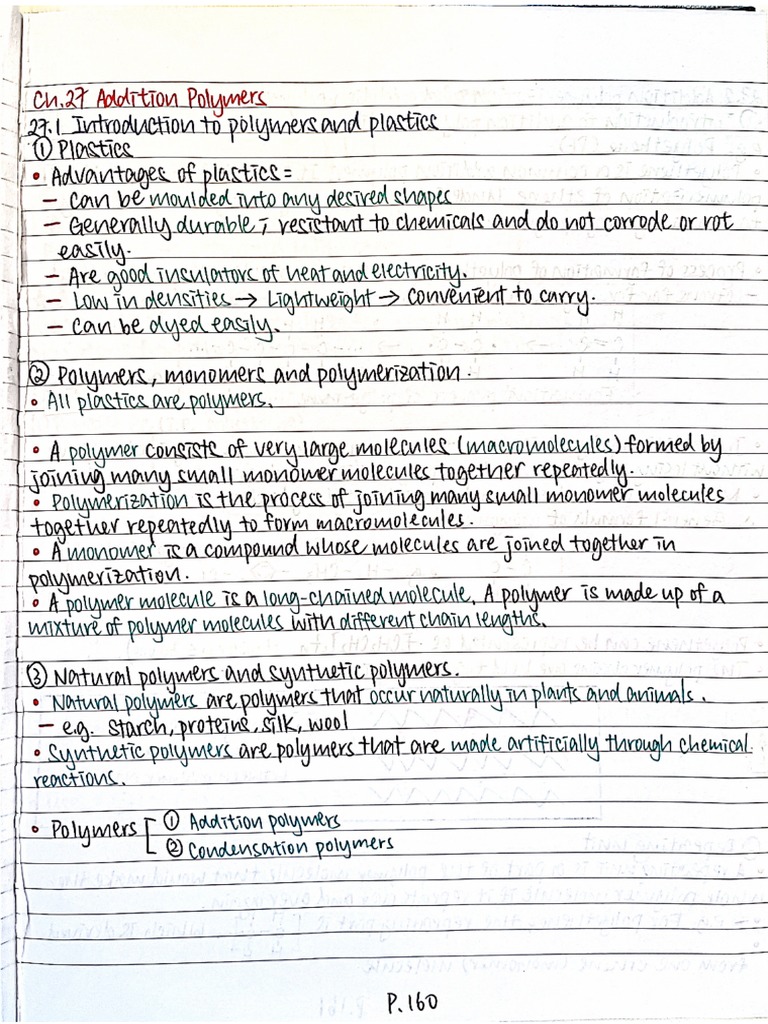 Ch.27 Addition Polymers
27.1 Introduction to polymers and plastics
① Plastics
• Advantages of plastics:
– Can be moulded into any desired shapes
– Generally durable, resistant to chemicals and do not corrode or rot
easily.
– Are good insulators of heat and electricity.
– Low in densities → Lightweight → convenient to carry.
– Can be dyed easily.
② Polymers, monomers and polymerization.
• All plastics are polymers.
• A polymer consists of very large molecules (macromolecules) formed by
joining many small monomer molecules together repeatedly.
• Polymerization is the process of joining many small monomer molecules
together repeatedly to form macromolecules.
• A monomer is a compound whose molecules are joined together in
polymerization.
• A polymer molecule is a long-chained molecule. A polymer is made up of a
mixture of polymer molecules with different chain lengths.
③ Natural polymers and synthetic polymers.
• Natural polymers are polymers that occur naturally in plants and animals.
– e.g. starch, proteins, silk, wool
• Synthetic polymers are polymers that are made artificially through chemical
reactions.
• Polymers [ ① Addition polymers
② Condensation polymers
P.160